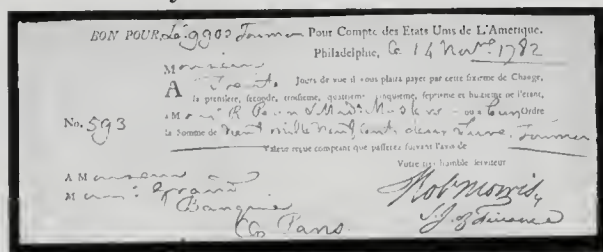 BON POUR, Lt. 9902 Tournois Pour Compte des Etats Unis de L'Amerique.
Philadelphie, Ce 14 Novre. 1782
Monsieur
A Trente Jours de vue il vous plaira payer par cette sixieme de Change,
la premiere, seconde, troisieme, quatrieme cinquieme, septieme et huitieme ne l'etant,
a Ordre
No. 593
la Somme de Neuf mille Neuf Cents deux Livres Tournois
Valeur reçue comptant que passerez suivant l'avis de
Votre tres humble serviteur
A Monsieur
Monsr. Grand
Banquier
à Paris.
Robt Morris
S. J. of Finance